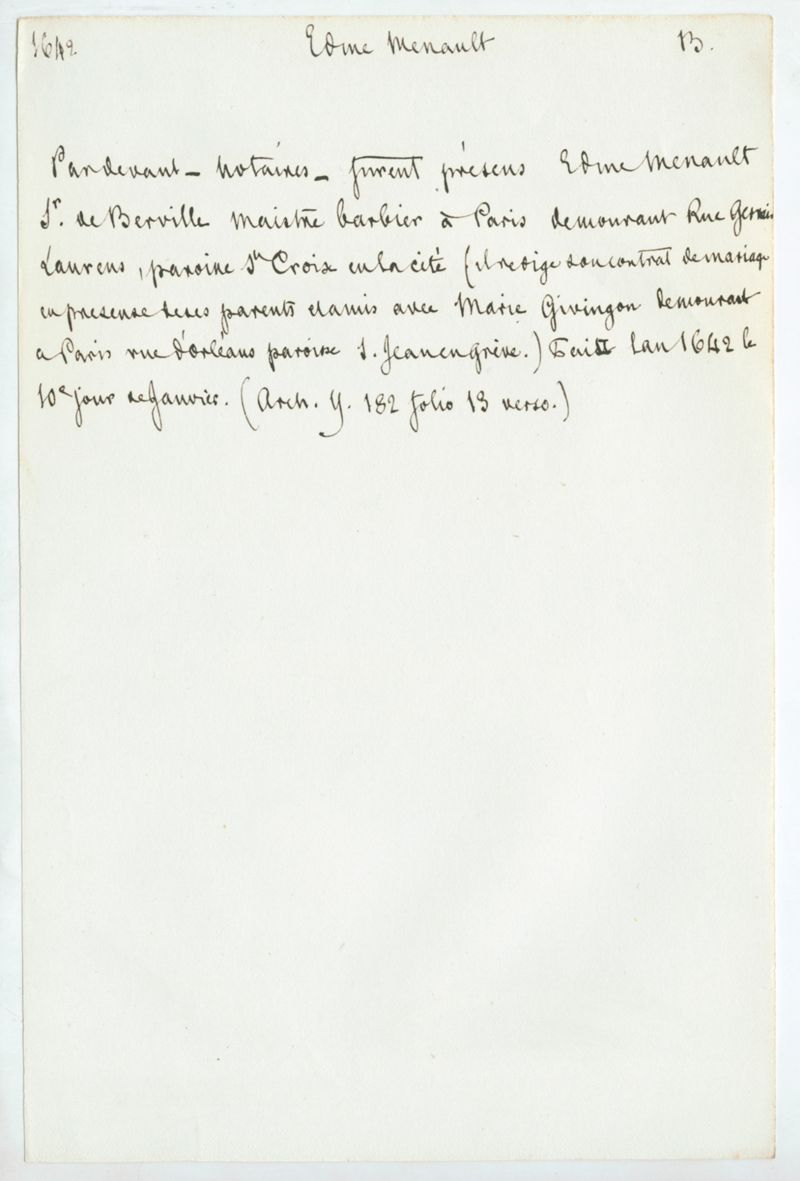 1642 Edme Menault B.
Pardevant _ notaires _ furent présens Edme Menault
Sr. de Berville maistre barbier à Paris demourant Rue Gervais
Laurens, paroisse Ste Croix en la cité (il redige son contrat de mariage
en presense de ses parents et amis avec Marie Givingon demourant
a Paris rue d'Orléans paroisse S. Jean en grève.) Fait lan 1642 le
10e jour de Janvier. (Arch. Y. 182 folio 13 verso.)